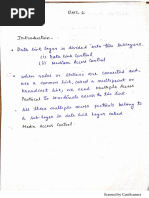 Unit 2
Introduction -
• Data link layer is divided into two sublayers.
(i) Data link Control
(ii) Medium Access Control
• When nodes or stations are connected and
use a common link, called a multipoint or
broadcast link, we need Multiple Access
Protocol to coordinate access to the link.
• All these multiple access protocols belong to
a sub layer in data link layer called
Media Access Control.
Scanned by CamScanner